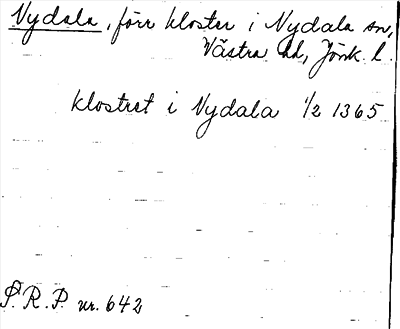 Nydala, förr kloster i Nydala sn,
Västra hd, Jönk. l.
klostret i Nydala 1/2 1365
S. R. P. nr. 642